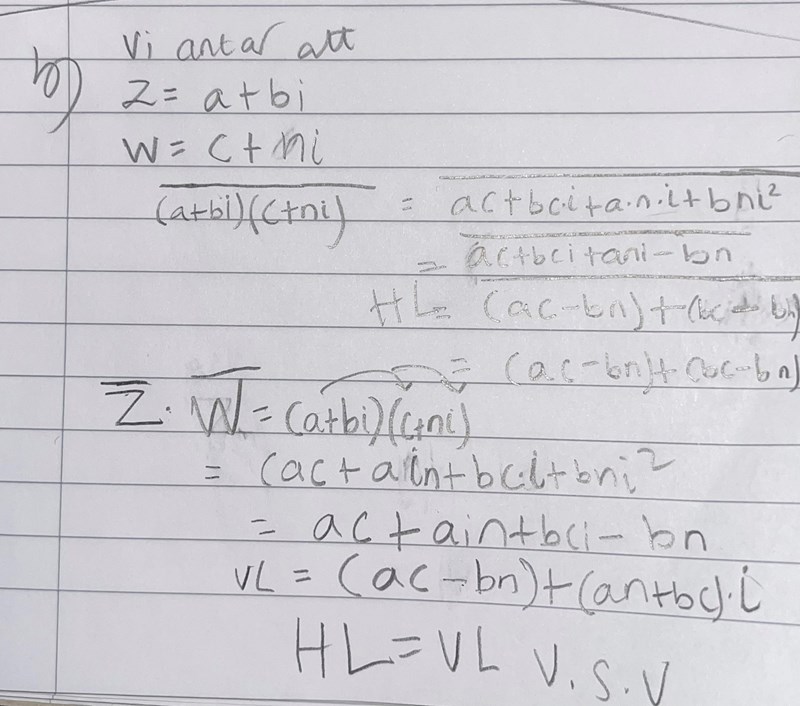 b)
Vi antar att
Z = a + bi
W = c + ni
(a+bi)(c+ni) = ac+bc·i+a·n·i+bni²
= ac+bci+ani-bn
HL = (ac-bn)+(bc
= (ac-bn)+(bc-bn)
Z̅ · W̅ = (a+bi)(c+ni)
= (ac + ain + bc·i + bni²
= ac + ain + bci - bn
VL = (ac - bn) + (an+bc)·i
HL = VL V.S.V